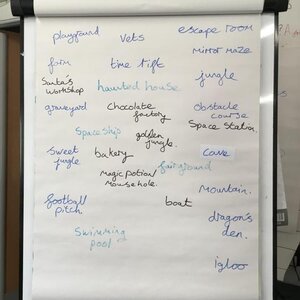 playground
vets
escape room
mirror maze
farm
time rift
jungle
Santa's
workshop
haunted house
graveyard
chocolate
factory
obstacle
course
Space Station.
Spaceship
golden
jungle.
sweet
jungle
bakery
cave
fairground
magic potion/
mousehole.
mountain.
football
pitch.
boat
dragon's
den.
swimming
pool
igloo